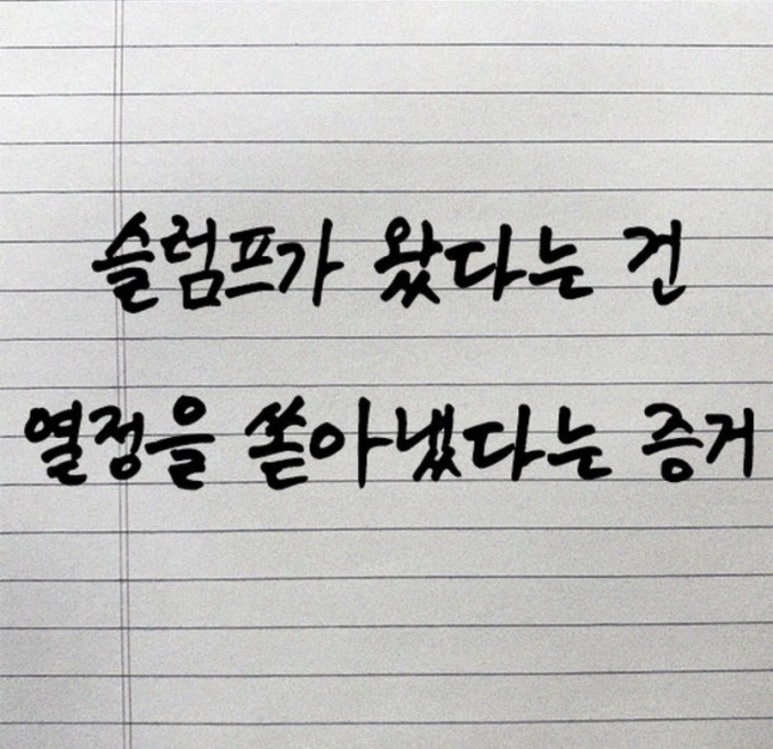 슬럼프가 왔다는 건
열정을 쏟아냈다는 증거